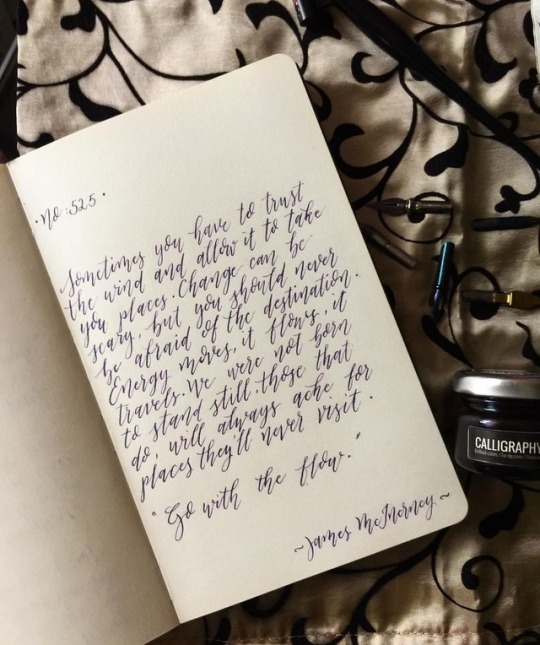 ·No:525·
Sometimes you have to trust
the wind and allow it to take
you places. Change can be
scary, but you should never
be afraid of the destination.
Energy moves, it flows, it
travels. We were not born
to stand still. those that
do, will always ache for
places they'll never visit.
"Go with the flow."
~James McInerney~
CALLIGRAPHY